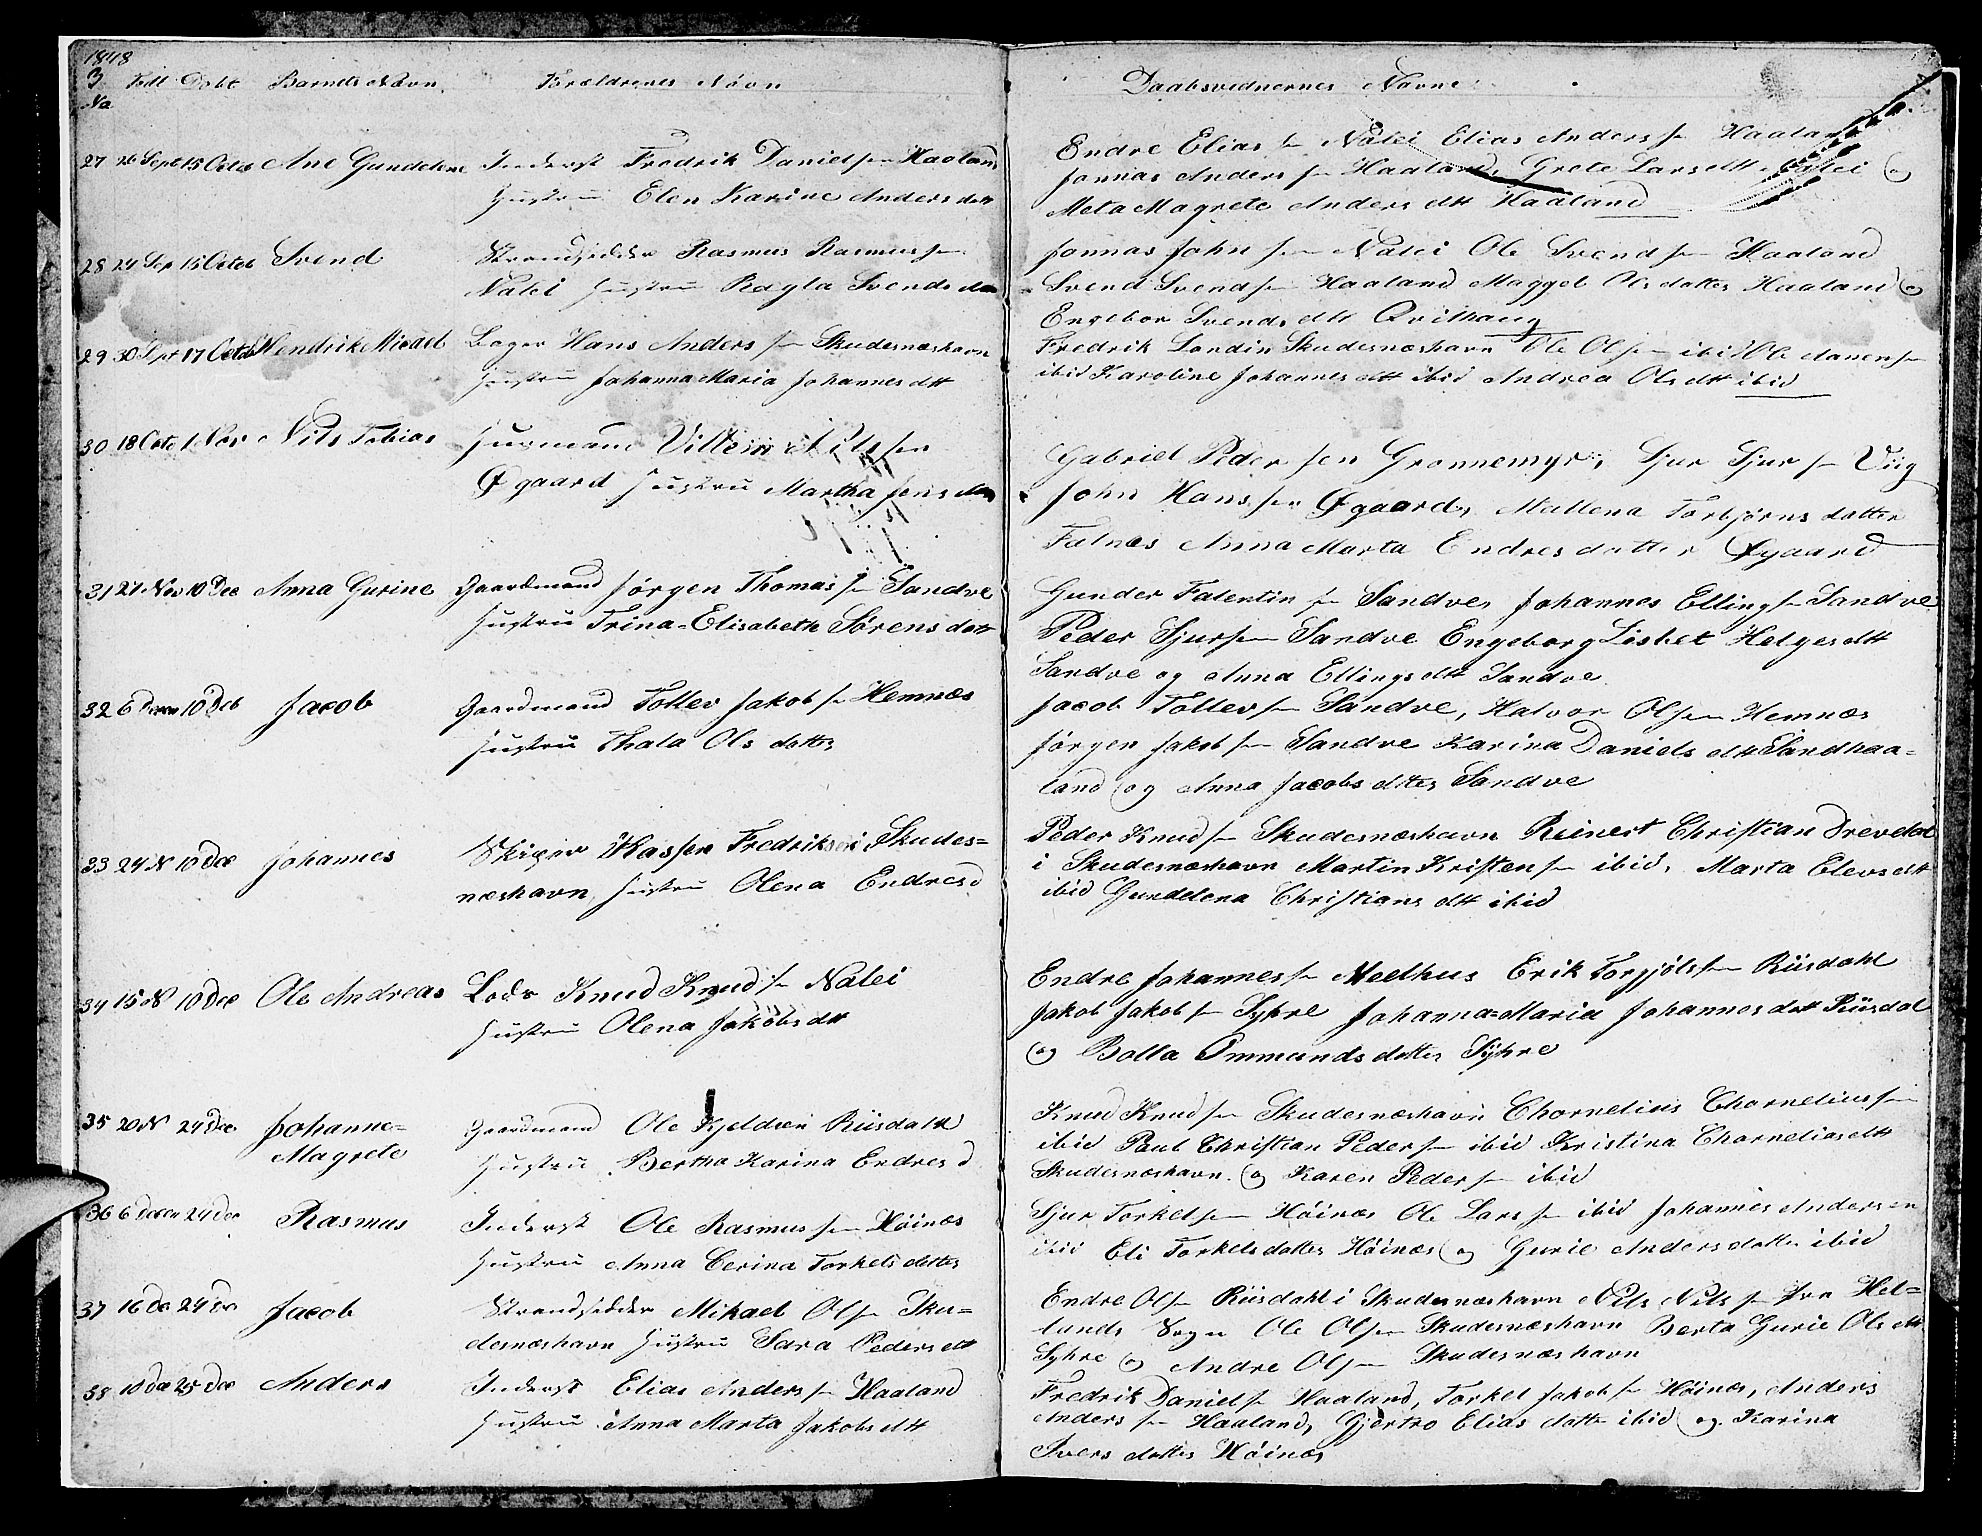 1848
3
No Fød Døbt Barnets Navn Forældrenes Navn
27 26 Sept 15 Octob Ane Gundelene Inderst Fredrik Danielsen Haaland
Hustru Elen Karine Andersdatt
28 24 Sep 15 Octob Svend Strandsidder Rasmus Rasmussen
Nalei Hustru Ragla Svendsdat
29 30 Sept 17 Octob Hendrik Micael Hans Anderssen Skudesnæshavn
Hustru Johanna Maria Johannesdtt
30 18 Octo 1 Nov Nils Tobias Husmand Villem Nilssen
Øgaard Hustru Martha Jensdat
31 27 Nov 10 Dec Anna Gurine Gaardmand Jørgen Thomassen Sandve
Hustru Trina-Elisabeth Sørensdatt
32 6 Decem 10 Deb Jacob Gaardmand Tollev Jakobsen Hemnæs
Hustru Thala Olsdatter
33 24 N 10 Dec Johannes Skiper Hassen Fredriksen i Skudes=
næshavn Hustru Olena Endresd
34 15 N 10 Dec Ole Andreas Lods Knud Knudsen Nalei
Hustru Olena Jakobsdtt
35 20 N 24 Dec Johanne=
Magrete Gaardmand Ole Kjeldsen Riisdahl
Hustru Bertha Karina Endresd
36 6 Decem 24 Dec Rasmus Inderst Ole Rasmussen Høines
Hustru Anna Cerina Torkelsdatter
37 16 Dec 24 Dec Jacob Strandsidder Mikael Olsen Sku=
desnæshavn Hustru Sara Pedersdtt
38 10 Dec 25 Dec Anders Inderst Elias Anderssen Haaland
Hustru Anna Marta Jakobsdtt
Daabsvidnernes Navne
Endre Eliassen Nalei Elias Anderssen Haaland
Jonnas Anderssen Haaland, Grete Larsdtt Nalei og
Meta Magrete Andersdtt Haaland
Jonnas Johnsen Nalei Ole Svendsen Haaland
Svend Svendsen Haaland Maggel Olsdatter Haaland og
Engebor Svendsdtt Qvilhaug
Fredrik Londin Skudesnæshavn Ole Olsen ibid Ole Aanensen
ibid Karoline Johannesdtt ibid Andrea Olsdtt ibid
Gabriel Pedersen Grønnemyr, Sjur Sjursen Viig
John Hanssen Øgaard, Mallena Torbjørnsdatter
Falnæs Anna Marta Endresdatter Øgaard
Gunder Falentinsen Sandve, Johannes Ellingsen Sandve
Peder Sjursen Sandve Engeborg Lisbet Helgesdtt
Sandve og Anna Ellingsdtt Sandve
Jacob Tollevsen Sandve, Halvor Olsen Hemnæs
Jørgen Jakobsen Sandve Karina Danielsdtt Sandhaa=
land og Anna Jacobsdtter Sandve
Peder Knudsen Skudesnæshavn Reinert Christian Drevdal
i Skudesnæshavn Martin Kristensen ibid, Marta Elevsdtt
ibid Gundelena Christiansdtt ibid
Endre Johannessen Meelhus Erik Torgjølssen Riisdahl
Jakob Jakobsen Syhre Johanna=Maria Johannesdatt Riisdal
og Bolla Ommundsdatter Syhre
Knud Knudsen Skudesnæshavn Chornelius Chorneliussen
ibid Paul Christian Pedersen ibid Kristina Chorneliasdtt
Skudesnæshavn og Karen Pedersen ibid
Sjur Torkelsen Høinæs Ole Larssen ibid Johannes Andersen
ibid Eli Torkelsdatter Høinæs og Gurie Andersdatter ibid
Endre Olsen Riisdahl i Skudesnæshavn Nils Nilssen fra Het=
lands Sogn Ole Olsen Skudesnæshavn Berta Gurie Olsdtt
Syhre og Andre Olsen Skudesnæshavn
Fredrik Danielsen Haaland, Torkel Jakobsen Høinæs, Anders
Anderssen Haaland, Gjertro Eliasdatter ibid og Karina
Iversdatter Høinæs